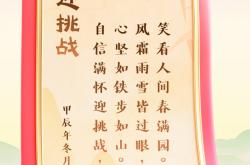 迎挑战
笑看人间春满园。
风霜雨雪皆过眼，
心坚如铁步如山。
自信满怀迎挑战，
甲辰年冬月